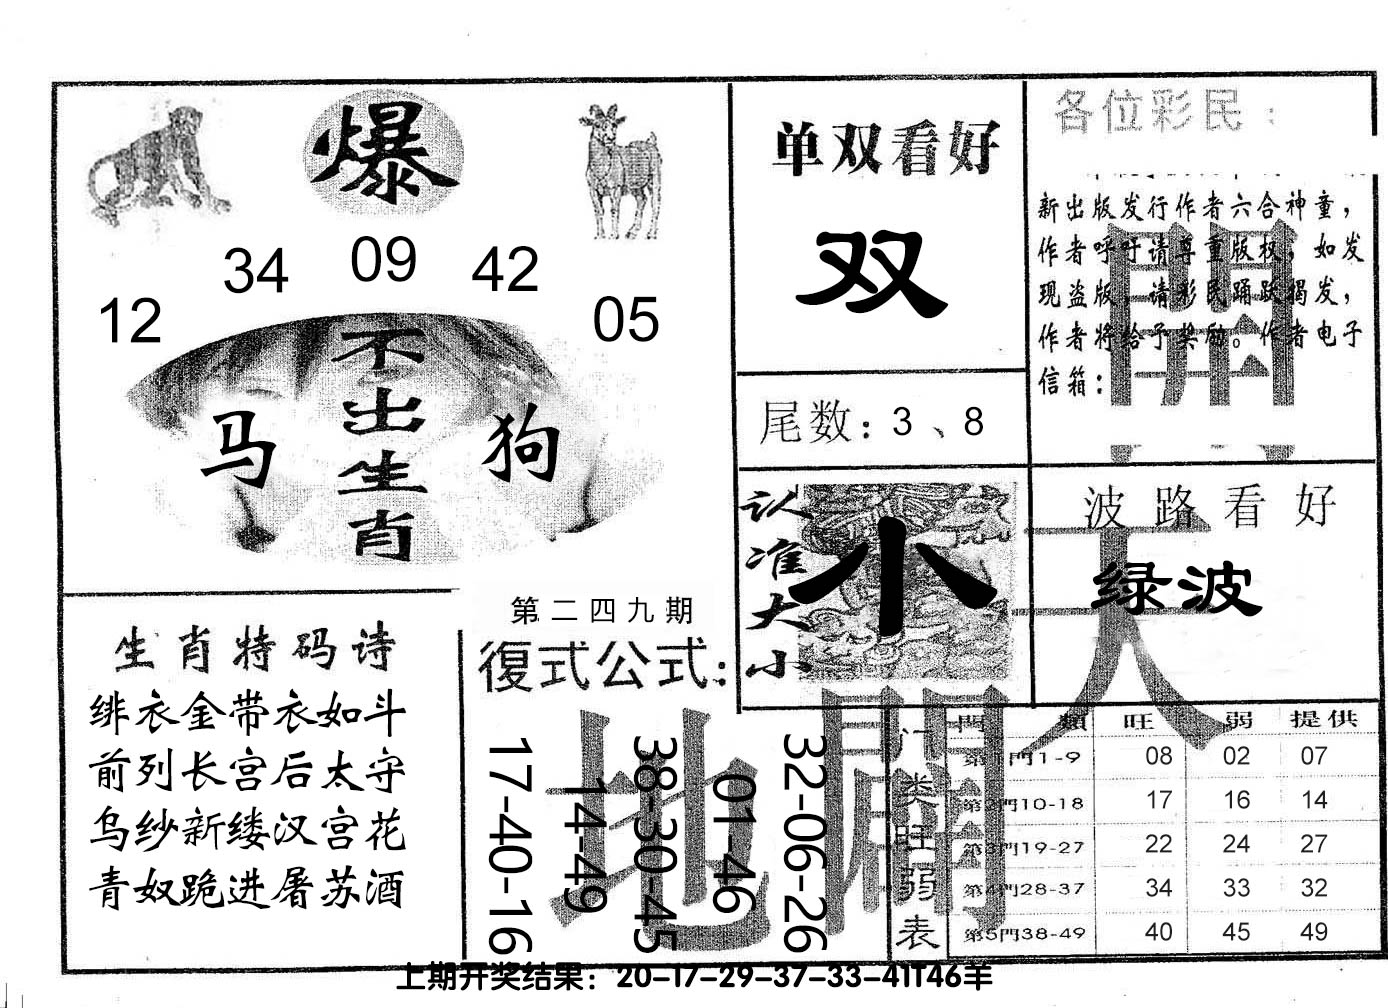 爆
34 09 42
12 05
不出生肖
马 狗
单双看好
双
尾数：3、8
各位彩民：
新出版发行作者六合神童，
作者呼吁请尊重版权，如发
现盗版，请彩民踊跃揭发，
作者将给予奖励。作者电子
信箱：
認准大小
小
波路看好
绿波
天
開
地
生肖特码诗
绯衣金带衣如斗
前列长宫后太守
乌纱新缕汉宫花
青奴跪进屠苏酒
第二四九期
復式公式：
17-40-16
14-49
38-30-45
01-46
32-06-26
门类旺弱表
門類 旺 弱 提供
第1門1-9 08 02 07
第2門10-18 17 16 14
第3門19-27 22 24 27
第4門28-37 34 33 32
第5門38-49 40 45 49
上期开奖结果：20-17-29-37-33-41T46羊